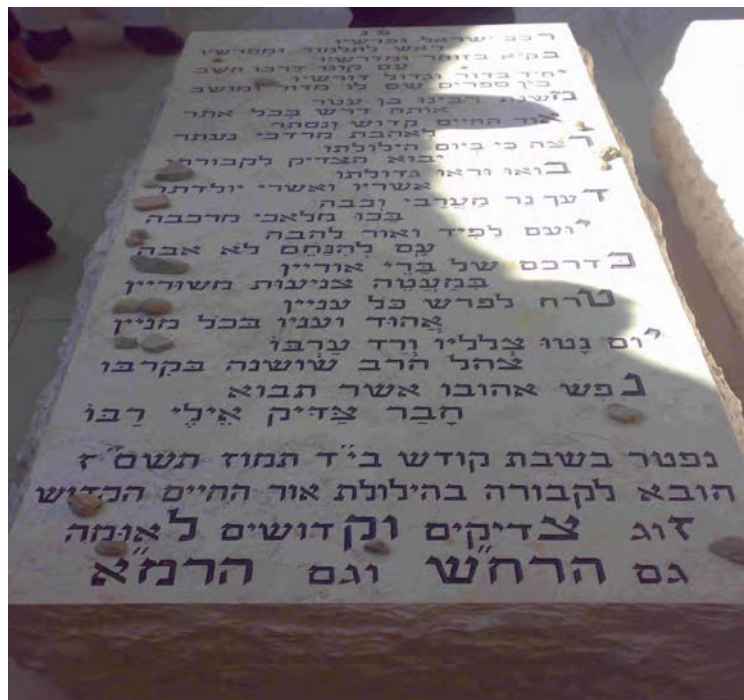 פ נ
רכב ישראל ופרשיו
ראש לתלמוד ומפרשיו
בקיא בזוהר ומדרשיו
עם קונו דרכו חשב
יחיד בדור וגדול דורשיו
בין ספרים שם לו מדור ומושב
משנת רבינו בן עטר
אותה דרש בכל אתר
אור החיים קדוש ונסתר
לאהבת מרדכי נעתר
רצה כי ביום הילולתו
יבוא הצדיק לקבורתו
בואו וראו גדולתו
אשריו ואשרי יולדתו
דעך נר מַעֲרָבִי וכבה
בָּכוּ מלאכי מרכבה
יועם לפיד ואור להבה
עָם לְהִנָּחֵם לֹא אבה
בדרכם של בָּרֵי אוריין
בְּמַעֲטֵה צניעות משוריין
טרח לפרש כל עניין
אָהוּד ועניו בכל מניין
יום נָטוּ צְלָלָיו וְרַד עַרְבּוֹ
צהל הרב שושנה בקרבו
נפש אהובו אשר תבוא
חָבַר צַדִּיק אֵילֵי רַבּוֹ
נפטר בשבת קודש בי"ד תמוז תשמ"ז
הובא לקבורה בהילולת אור החיים הקדוש
זוג צדיקים וקדושים לאומה
גם הרח"ש וגם הרמ"א